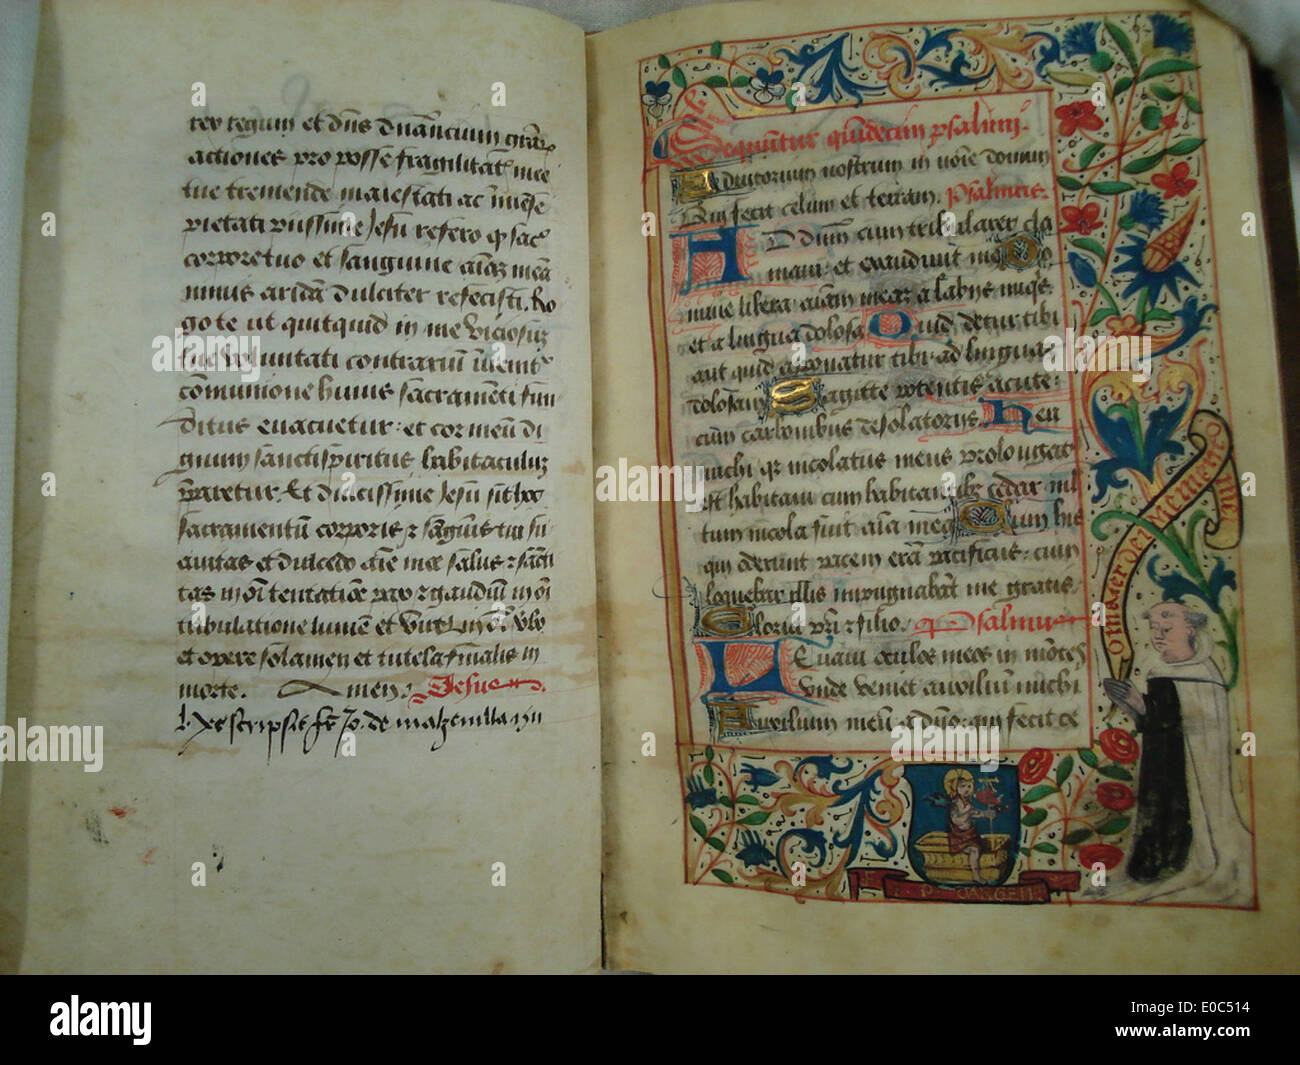 rex regum et dñs dñancium grãꝝ
actiones pro posse fragilitat͛ mee
tue tremende maiestati ac inmẽse
pietati piissime Jesu refero qꝫ sacͦ
corpore tuo et sanguine aĩaꝫ meã
nimis aridã dulciter refecisti. Ro
go te ut quitquid in me viciosuꝫ
tue voluntati contrarium
cõmunione huius sacramẽti fun
ditus evacuetur: et cor meũ di
gnum sanctispiritus habitaculuꝫ
p̃paretur. Et dulcissime Jesu sit hoc
sacramentũ corporis ⁊ sãguĩs tui su
avitas et dulcedo aĩe mee salus ⁊ sãcti
tas in oĩ tentatiõe pax ⁊ gaudiũ in oĩ
tribulatione lumen et virtus in oĩ ṽbo
et opere solamen et tutela finalis in
morte. Amen. Jesus
scripsit fr̃ Jo. de
Sequuntur quĩdecim psalmi.
Adiutorium nostrum in noĩe domini
Qui fecit celum et terram. Psalmus
AD Dñm cum tribularer cla
mavi: et exaudivit me Do
mine libera aĩam meaꝫ a labiis iniqͥs
et a lingua dolosa Quid detur tibi
aut quid apponatur tibi: ad linguã
dolosam Sagitte potentis acute:
cum carbonibus desolatoriis. Heu
michi qꝛ incolatus meus prolongatꝰ
est habitavi cum habitantibꝫ cedar mul
tum incola fuit aĩa mea Cum his
qui oderunt pacem erã pacificus: cum
loquebar illis impugnabãt me gratis.
Gloria pr̃i ⁊ filio. Psalmus
LEvavi oculos meos in mõtes
unde veniet auxiliũ michi
Auxilium meũ a dño: qui fecit ce
O mater dei memento mei
alamy
Image ID: E0C514
www.alamy.com